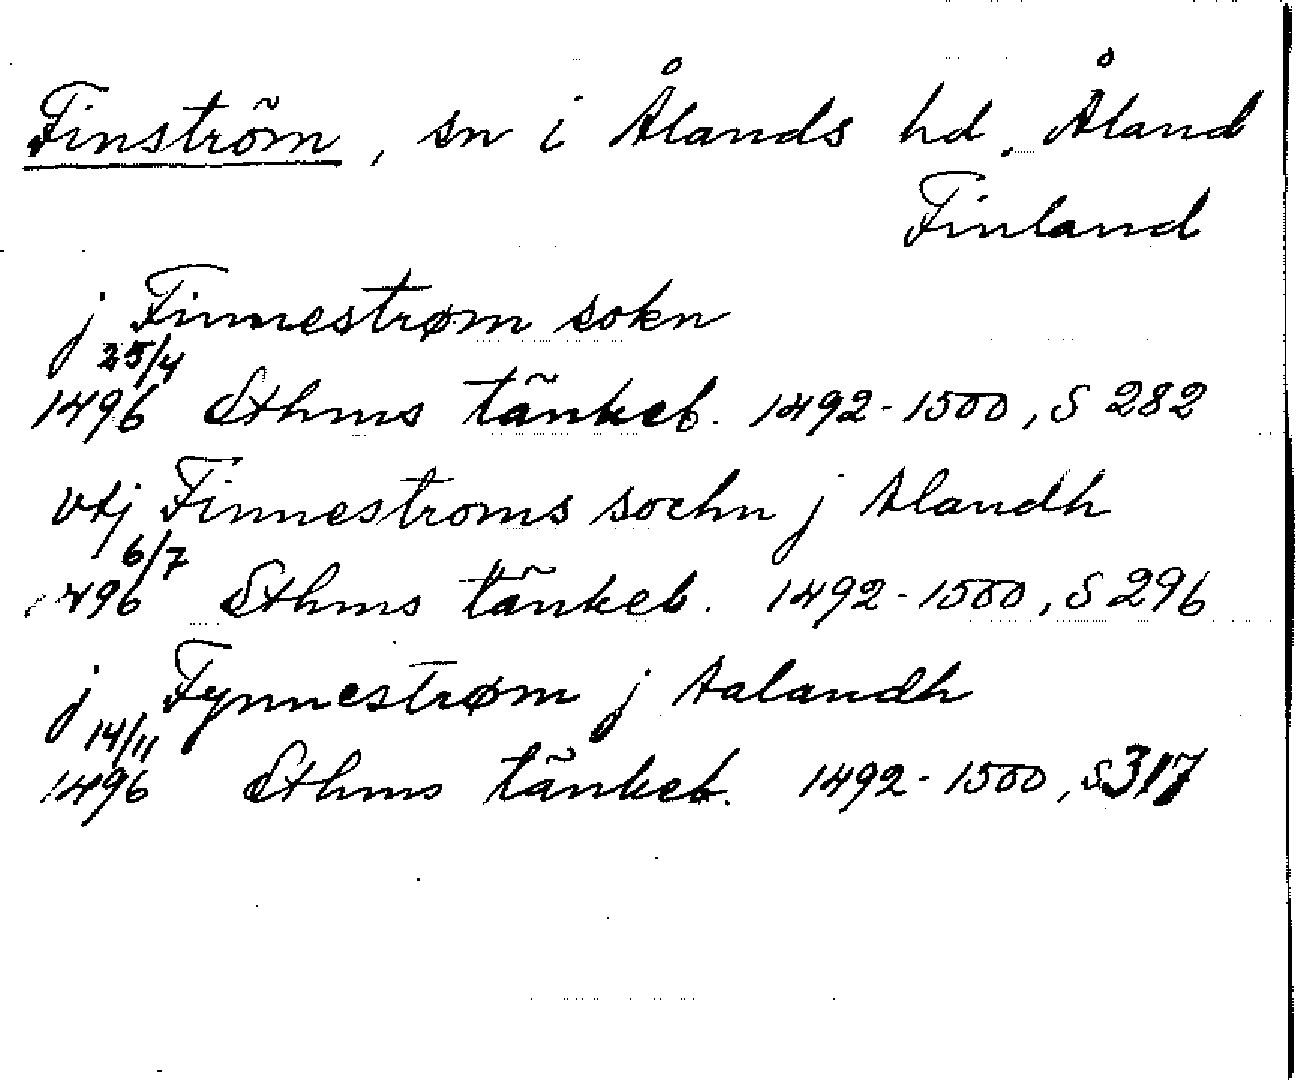 Finström, sn i Ålands hd. Åland
Finland
j Finnestrøm sokn
25/4
1496 Sthms tänkeb. 1492-1500, S 282
vtj Finnestroms sochn j Alandh
6/7
1496 Sthms tänkeb. 1492-1500, S 296
j Fynnestrøm j Aalandh
14/11
1496 Sthms tänkeb. 1492-1500, S 317